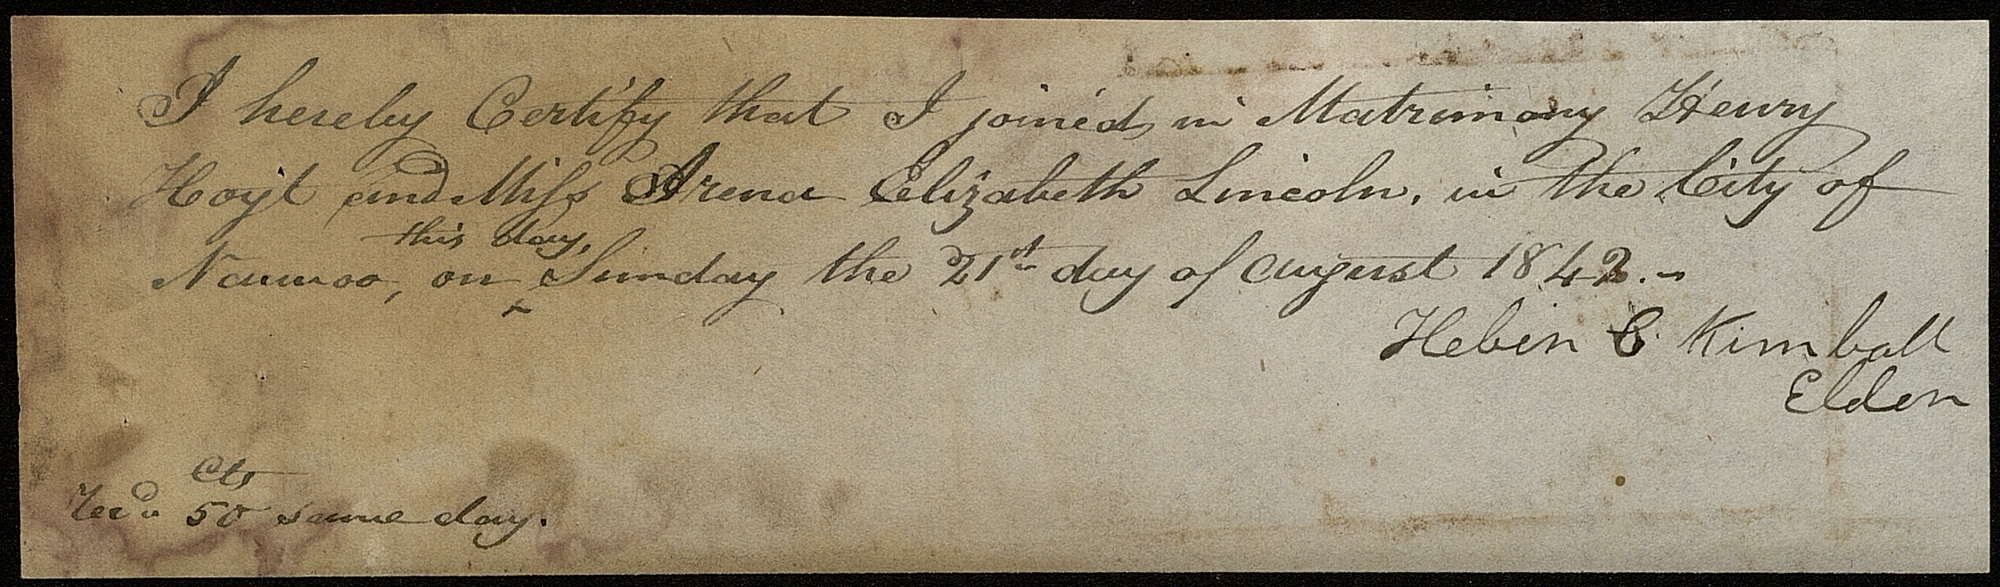 I hereby Certify that I joined in Matrimony Henry
Hoyt and Miss Irena Elizabeth Lincoln, in the City of
this day,
Nauvoo, on ‸ Sunday the 21st day of august 1842.–
Heber C Kimball
Elder
Cts
Rec'd 50 same day.